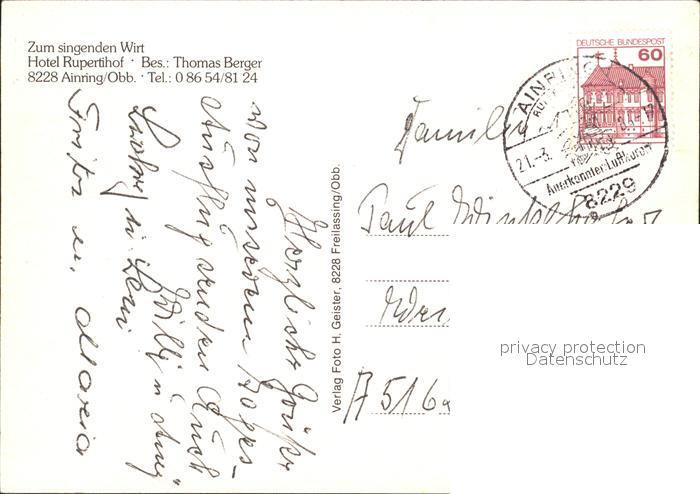 Zum singenden Wirt
Hotel Rupertihof · Bes.: Thomas Berger
8228 Ainring/Obb. · Tel.: 0 86 54/81 24
Herzliche Grüße
von unserem Tages-
Ausflug senden Euch
Willi u. Anny
Ludwig u. Leni
Fritz u. Maria
Verlag Foto H. Geister, 8228 Freilassing/Obb.
DEUTSCHE BUNDESPOST
60
AINRING
21.-3.
Anerkannter Luftkurort
8229
Familie
Paul
A 516
privacy protection
Datenschutz